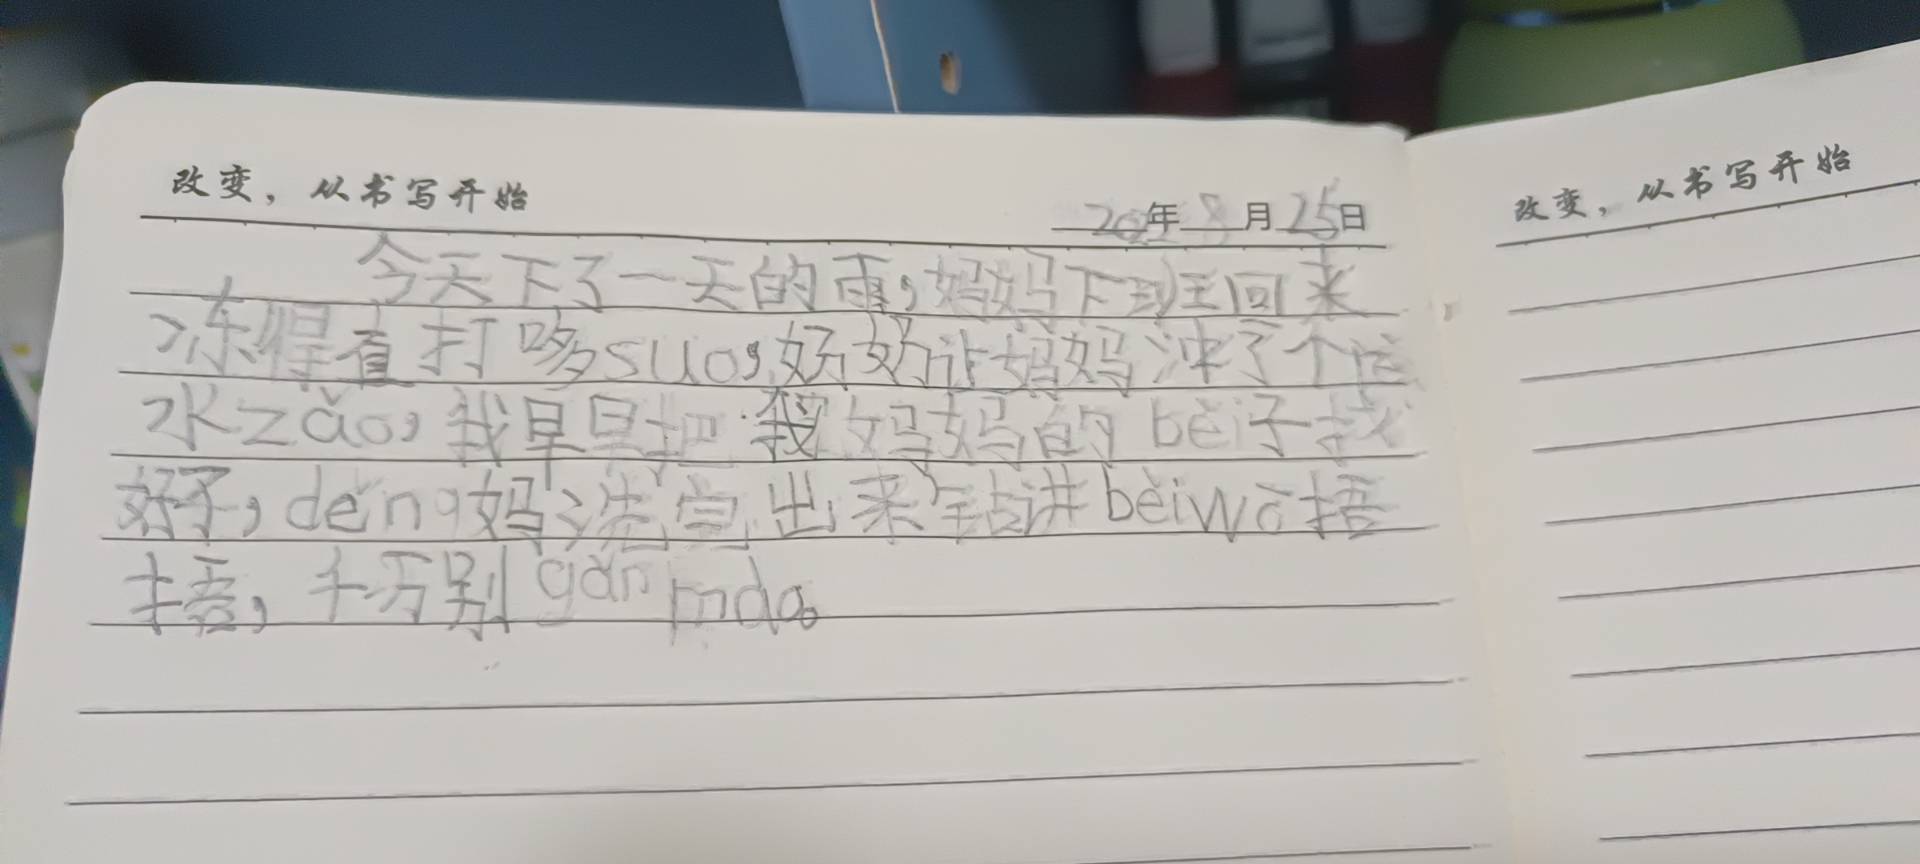 改变，从书写开始
2022年8月25日
今天下了一天的雨，妈妈下班回来
冻得直打哆suo，好好让妈妈冲了个
水zǎo，我早早把我妈妈的bèi子找
好了，děng妈洗完出来钻进bèiwō捂
捂，千万别gǎn mào。
改变，从书写开始